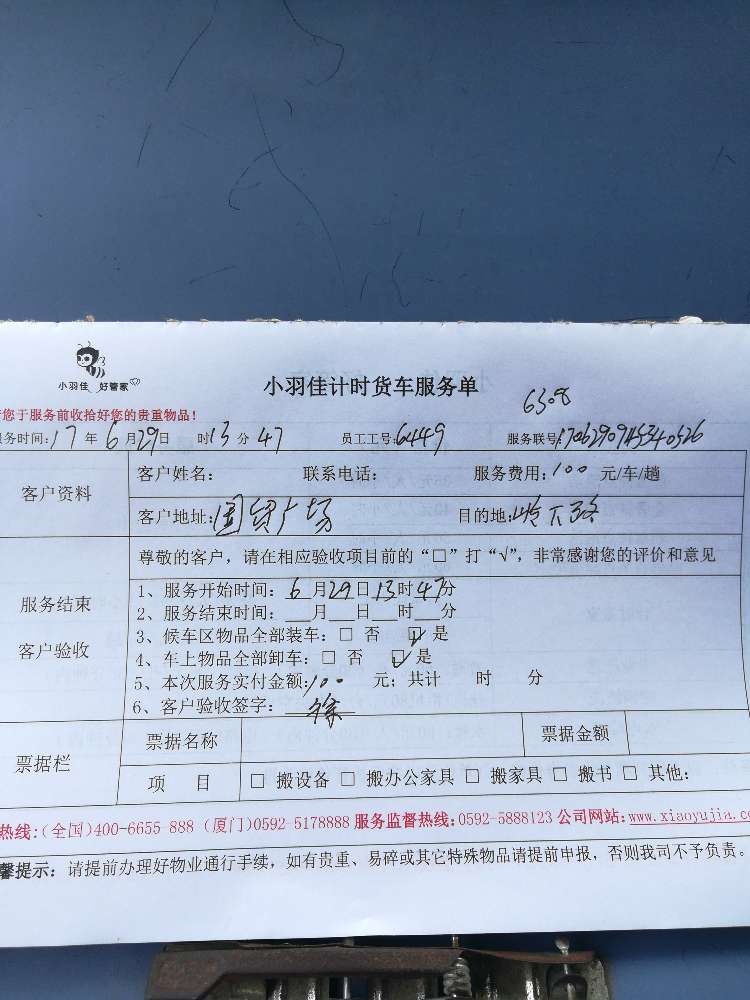 小羽佳 好管家
小羽佳计时货车服务单
6308
您于服务前收拾好您的贵重物品!
务时间:17年6月29日 时13分47 员工工号:6449 服务联号:
客户资料
客户姓名: 联系电话: 服务费用:100 元/车/趟
客户地址:国贸广场 目的地:岭下路
尊敬的客户，请在相应验收项目前的“□”打“√”，非常感谢您的评价和意见
服务结束
客户验收
1、服务开始时间: 6月29日13时47分
2、服务结束时间: __月__日__时__分
3、候车区物品全部装车: □ 否 ☑ 是
4、车上物品全部卸车: □ 否 ☑ 是
5、本次服务实付金额:100 元; 共计 时 分
6、客户验收签字: 徐
票据栏
票据名称 票据金额
项 目 □ 搬设备 □ 搬办公家具 □ 搬家具 □ 搬书 □ 其他:
热线:(全国)400-6655 888 (厦门)0592-5178888 服务监督热线:0592-5888123 公司网站:www.xiaoyujia.co
馨提示: 请提前办理好物业通行手续，如有贵重、易碎或其它特殊物品请提前申报，否则我司不予负责。